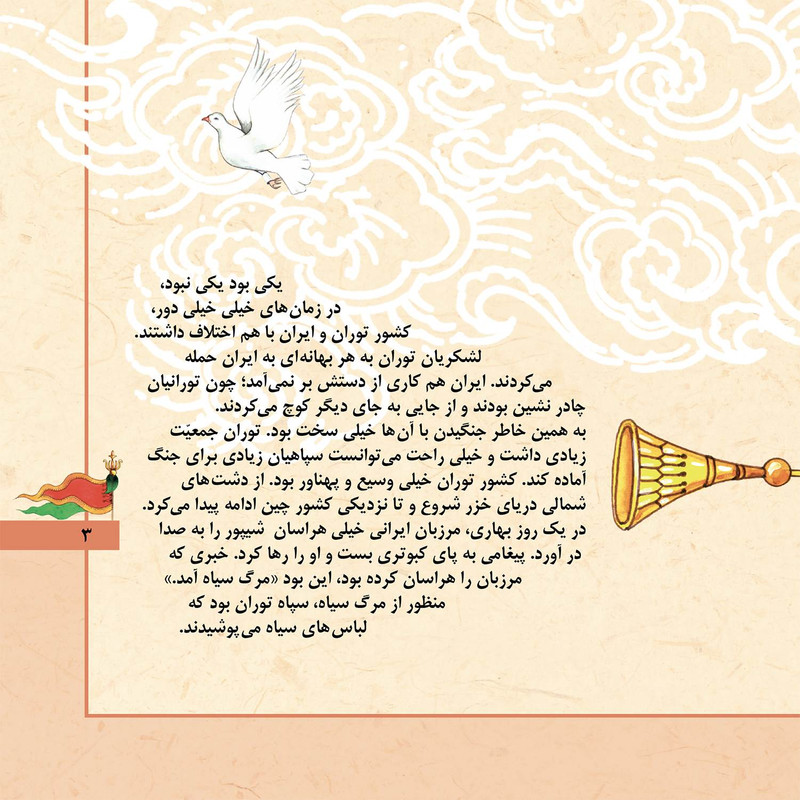 یکی بود یکی نبود،
در زمان‌های خیلی خیلی دور،
کشور توران و ایران با هم اختلاف داشتند.
لشکریان توران به هر بهانه‌ای به ایران حمله
می‌کردند. ایران هم کاری از دستش بر نمی‌آمد؛ چون تورانیان
چادر نشین بودند و از جایی به جای دیگر کوچ می‌کردند.
به همین خاطر جنگیدن با آن‌ها خیلی سخت بود. توران جمعیّت
زیادی داشت و خیلی راحت می‌توانست سپاهیان زیادی برای جنگ
آماده کند. کشور توران خیلی وسیع و پهناور بود. از دشت‌های
شمالی دریای خزر شروع و تا نزدیکی کشور چین ادامه پیدا می‌کرد.
در یک روز بهاری، مرزبان ایرانی خیلی هراسان شیپور را به صدا
در آورد. پیغامی به پای کبوتری بست و او را رها کرد. خبری که
مرزبان را هراسان کرده بود، این بود «مرگ سیاه آمد.»
منظور از مرگ سیاه، سپاه توران بود که
لباس‌های سیاه می‌پوشیدند.
۳